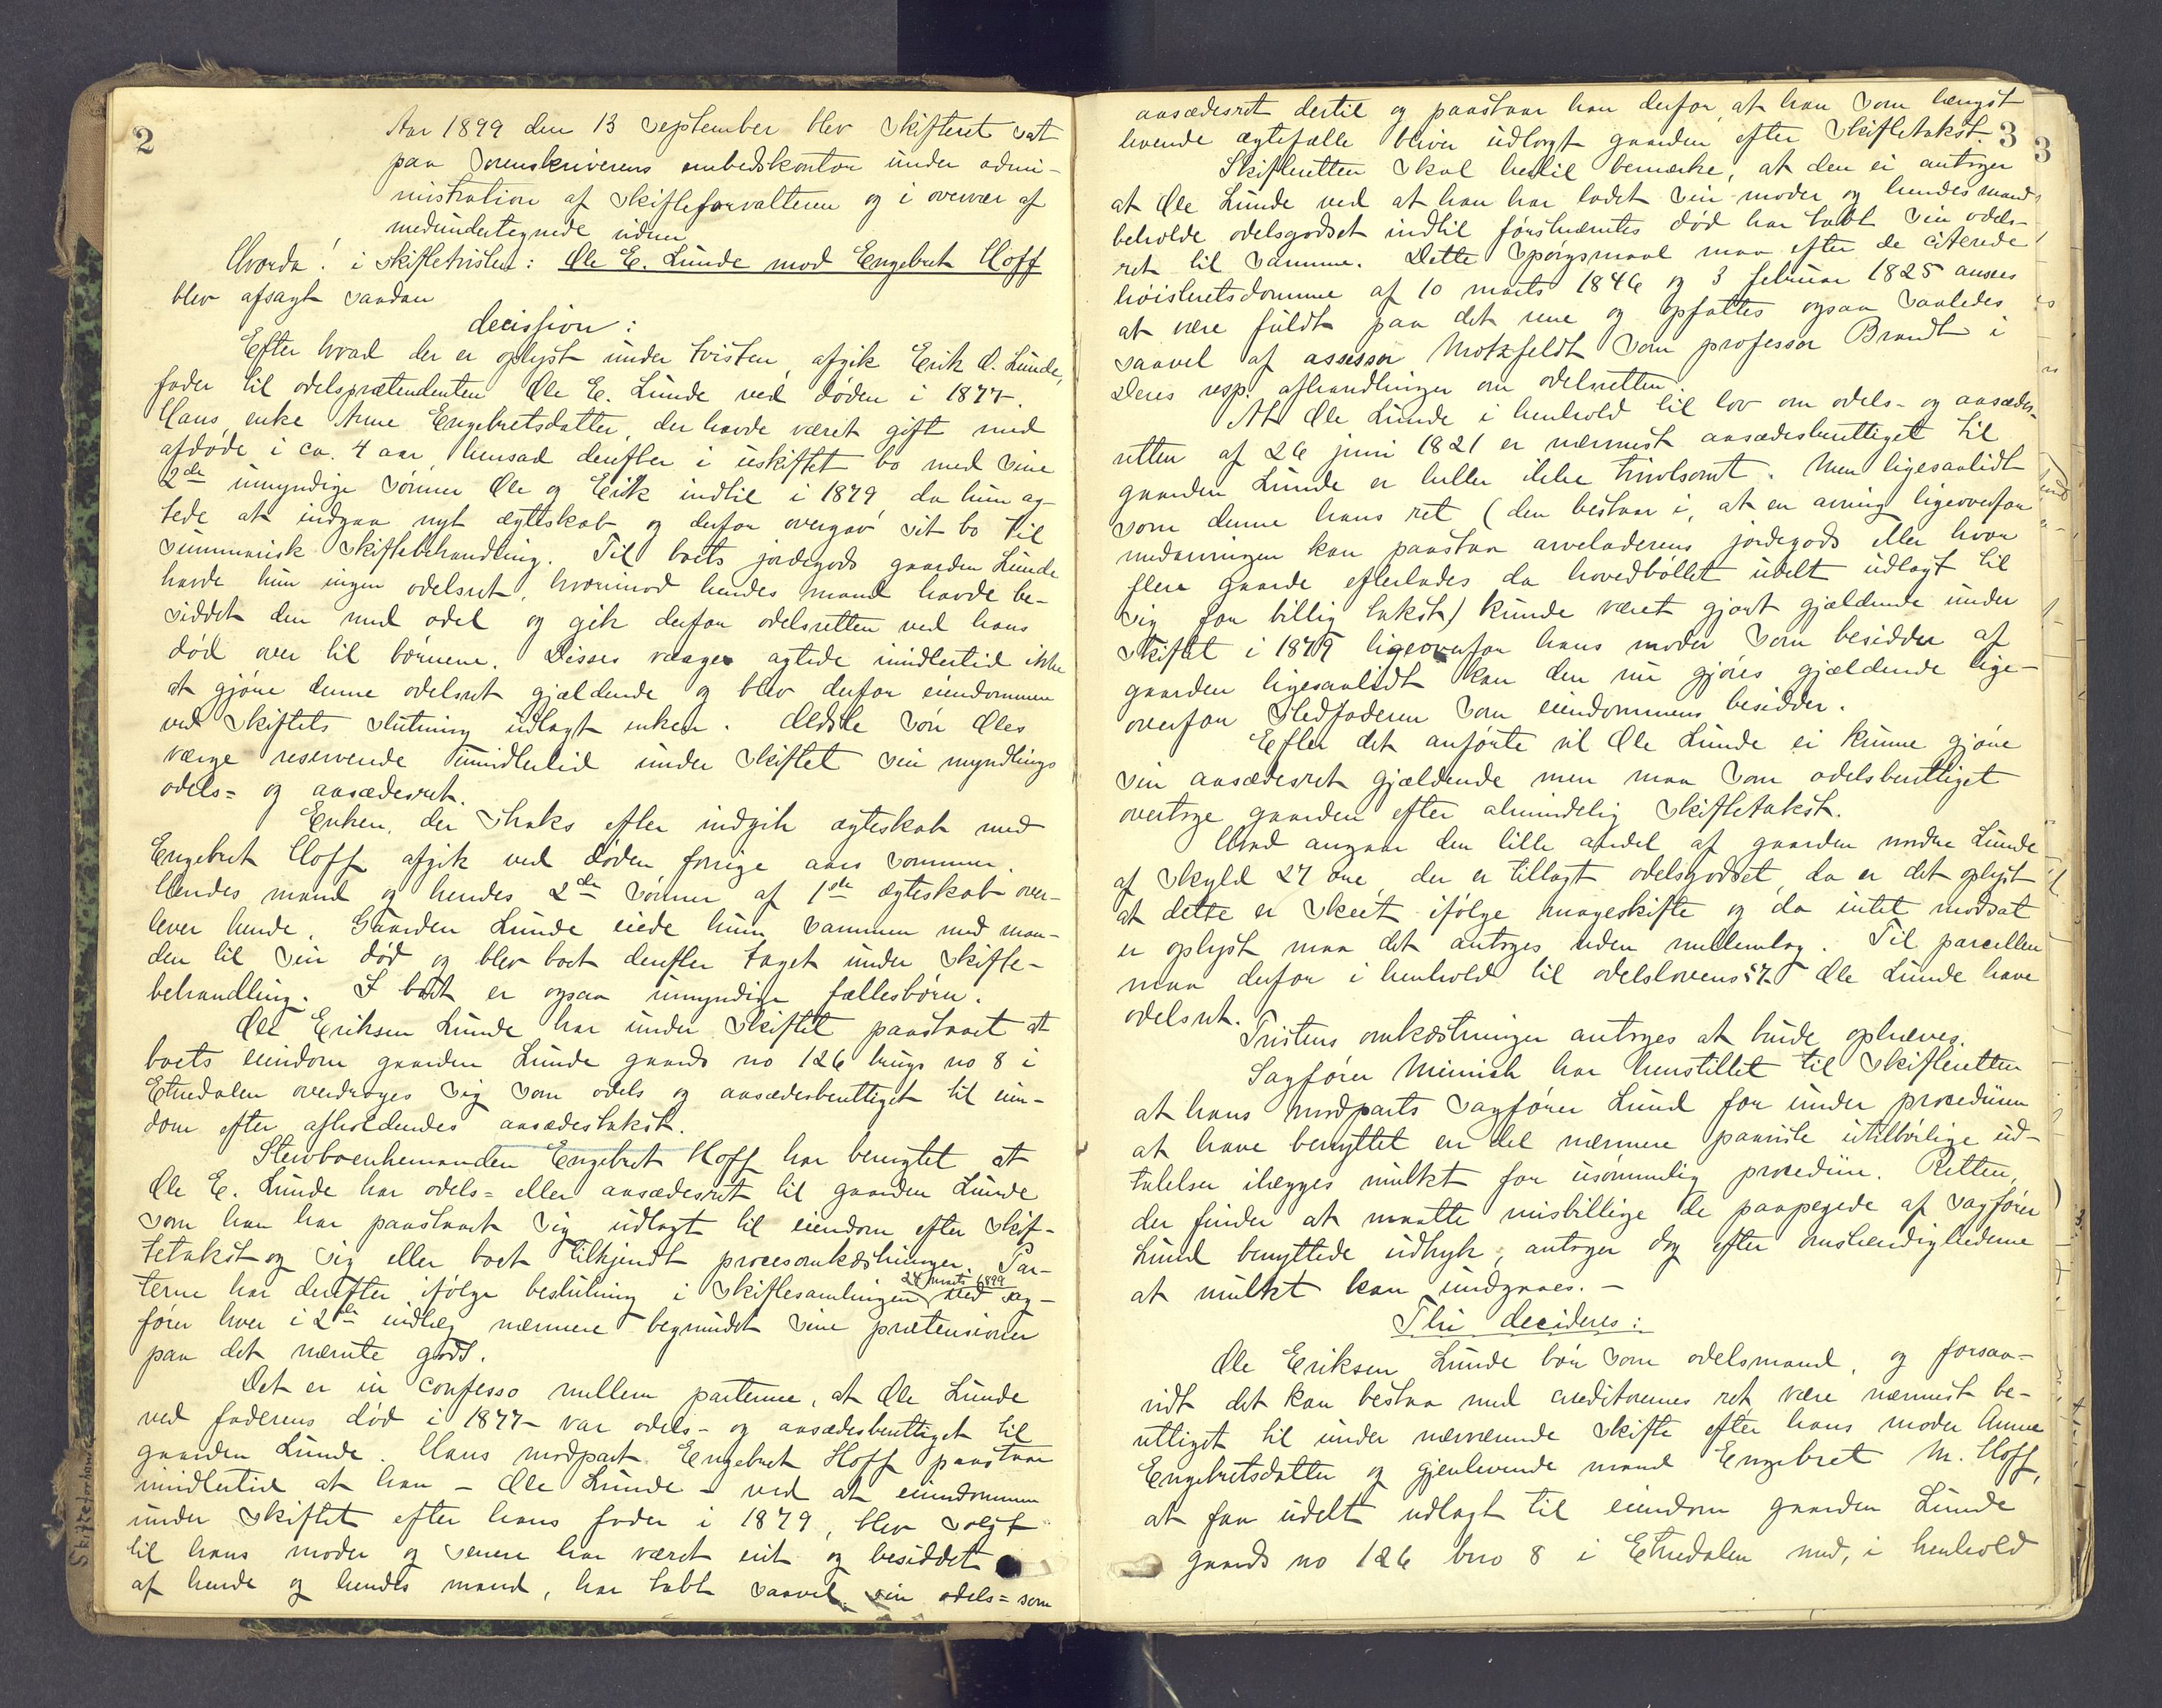 2
Aar 1899 den 13 september blev skifteret sat
paa sorenskriverens embedskontor under admi-
nistration af skifteforvalteren og i overvær af
medundertegnede vidner
Hvorda: i skiftetvisten: Ole E. Lunde mod Engebret Hoff
blev afsagt saadan
decission:
Efter hvad der er oplyst under tvisten, afgik Erik O. Lunde,
fader til odelsprætendenten Ole E. Lunde ved døden i 1877.
Hans enke Anne Engebretsdatter, der havde været gift med
afdøde i ca. 4 aar hensad derefter i uskiftet bo med sine
2de umyndige sønner Ole og Erik indtil i 1879, da hun ag-
tede at indgaa nyt ægteskab og derfor overgav sit bo til
summarisk skiftebehandling. Til boets jordegods gaarden Lunde
havde hun ingen odelsret, hvorimod hendes mand havde be-
siddet den med odel og gik derfor odelsretten ved hans
død over til børnene. Disses værger agtede imidlertid ikke
at gjøre denne odelsret gjældende og blev derfor eiendommen
ved skiftets slutning udlagt enken. Ældste søn Oles
værge reserverede imidlertid under skiftet sin myndlings
odels- og aasædesret.
Enken, der straks efter indgik ægteskab med
Engebret Hoff afgik ved døden forrige aars sommer.
Hendes mand og hendes 2de sønner af 1ste ægteskab over-
lever hende. Gaarden Lunde eiede hun sammen med man-
den til sin død og blev boet derefter taget under skifte-
behandling. I boet er ogsaa umyndige fællesbørn.
Ole Eriksen Lunde har under skiftet paastaaet at
boets eiendom gaarden Lunde gaards no 126 brugs no 8 i
Etnedalen overdrages sig som odels og aasædesberettiget til eien-
dom efter afholdendes aasædestakst.
Stervboenkemanden Engebret Hoff har benegtet at
Ole E. Lunde har odels- eller aasædesret til gaarden Lunde
som han har paastaaet sig udlagt til eiendom efter skif-
tetakst og sig eller boet tilkjendt procesomkostninger. Par-
terne har derefter ifølge beslutning i skiftesamlingen 24 marts 1899 ved sag-
fører hver i 2de indlæg nærmere begrundet sine prætensioner
paa det nævnte gods.
Det er in confesso mellem parterne, at Ole Lunde
ved faderens død i 1877 var odels- og aasædesberettiget til
gaarden Lunde. Hans modpart Engebret Hoff paastaar
imidlertid at han - Ole Lunde - ved at eiendommen
under skiftet efter hans fader i 1879, blev solgt
til hans moder og senere har været eiet og besiddet
af hende og hendes mand, har tabt saavel sin odels- som
3
3
aasædesret dertil og paastaar han derfor, at han som længst
levende ægtefælle bliver udlagt gaarden efter skiftetakst.
Skifteretten skal hertil bemærke, at den ei antager
at Ole Lunde ved at han har ladet sin moder og hendes mand
beholde odelsgodset indtil førstnævntes død har tabt sin odels-
ret til samme. Dette spørgsmaal maa efter de citerede
høiesteretsdomme af 10 marts 1846 og 3 februar 1825 ansees
at være fuldt paa det rene og opfattes ogsaa saaledes
saavel af assessor Motzfeldt som professor Brandt i
deres resp. afhandlinger om odelsretten.
At Ole Lunde i henhold til lov om odels- og aasædes-
retten af 26 juni 1821 er nærmest aasædesberettiget til
gaarden Lunde er heller ikke tvivlsomt. Men ligesaalidt
som denne hans ret (den bestaar i, at en arving ligeoverfor
medarvingen kan paastaa arveladerens jordegods eller hvor
flere gaarde efterlades da hovedbøllet udelt udlagt til
sig for billig takst) kunde været gjort gjældende under
skiftet i 1879 ligeoverfor hans moder som besidder af
gaarden ligesaalidt kan den nu gjøres gjældende lige-
overfor stedfaderen som eiendommens besidder.
Efter det anførte vil Ole Lunde ei kunne gjøre
sin aasædesret gjældende men maa som odelsberettiget
overtage gaarden efter almindelig skiftetakst.
Hvad angaar den lille andel af gaarden nordre Lunde
af skyld 27 øre, der er tillagt odelsgodset, da er det oplyst
at dette er skeet ifølge mageskifte og da intet modsat
er oplyst maa det antages uden mellemlag. Til parcellen
maa derfor i henhold til odelslovens § 7 Ole Lunde have
odelsret.
Tvistens omkostninger antages at burde ophæves.
Sagfører Minnich har henstillet til skifteretten
at hans modparts sagfører Lund for under proceduren
at have benyttet en del nærmere paaviste utilbørlige ud-
talelser ilægges mulkt for usømmelig procedure. Retten,
der finder at maatte misbillige de paapegede af sagfører
Lund benyttede udtryk, antager dog efter omstændighederne
at mulkt kan undgaaes. -
Thi decideres:
Ole Eriksen Lunde bør som odelsmand, og forsaa-
vidt det kan bestaa med creditorernes ret, være nærmest be-
rettiget til under nærværende skifte efter hans moder Anne
Engebretsdatter og gjenlevende mand Engebret M. Hoff,
at faa udelt udlagt til eiendom gaarden Lunde
gaards no 126 bno 8 i Etnedalen med, i henhold